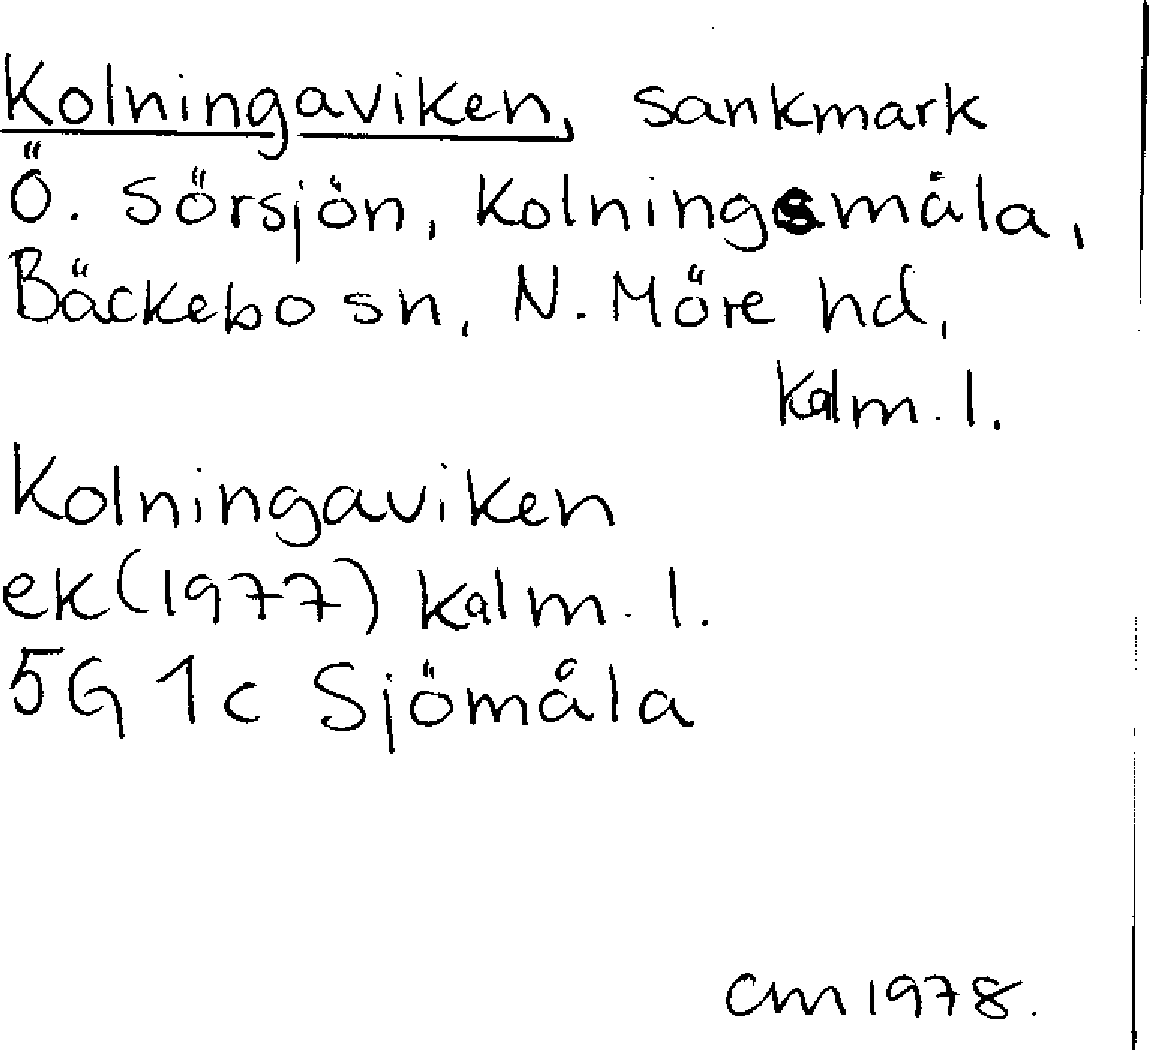 Kolningaviken, sankmark
Ö. Sörsjön, Kolningsmåla,
Bäckebo sn, N. Möre hd,
Kalm. l.
Kolningaviken
ek (1977) Kalm. l.
5G 1c Sjömåla
CM 1978.